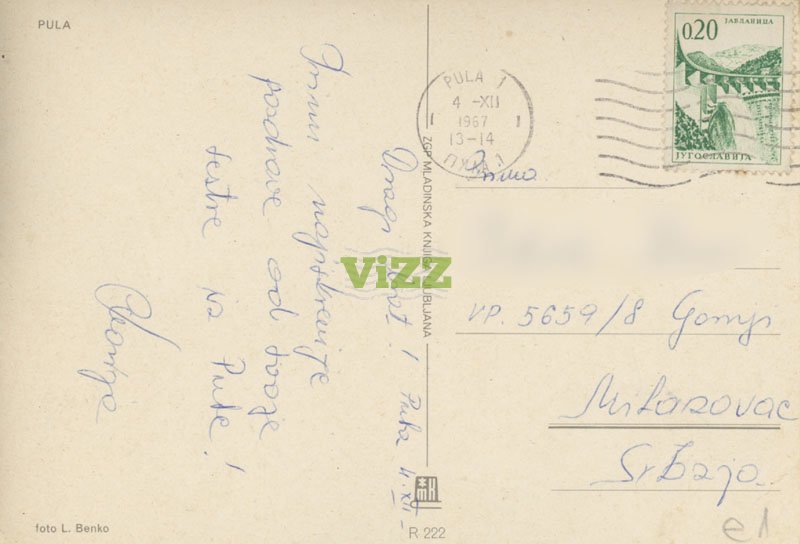 PULA
Primi najsrdačnije
pozdrave od tvoje
sestre iz Pule!
Dragi
! Pula 4. XII
ZGP MLADINSKA KNJIGA LJUBLJANA
ViZZ
foto L. Benko
R 222
PULA 1
4 -XII
1967
13-14
ПУЛА 1
0.20
ЈАБЛАНИЦА
ЈУГОСЛАВИЈА
Prima
VP. 5659/8 Gornji
Milanovac
Srbija
e1